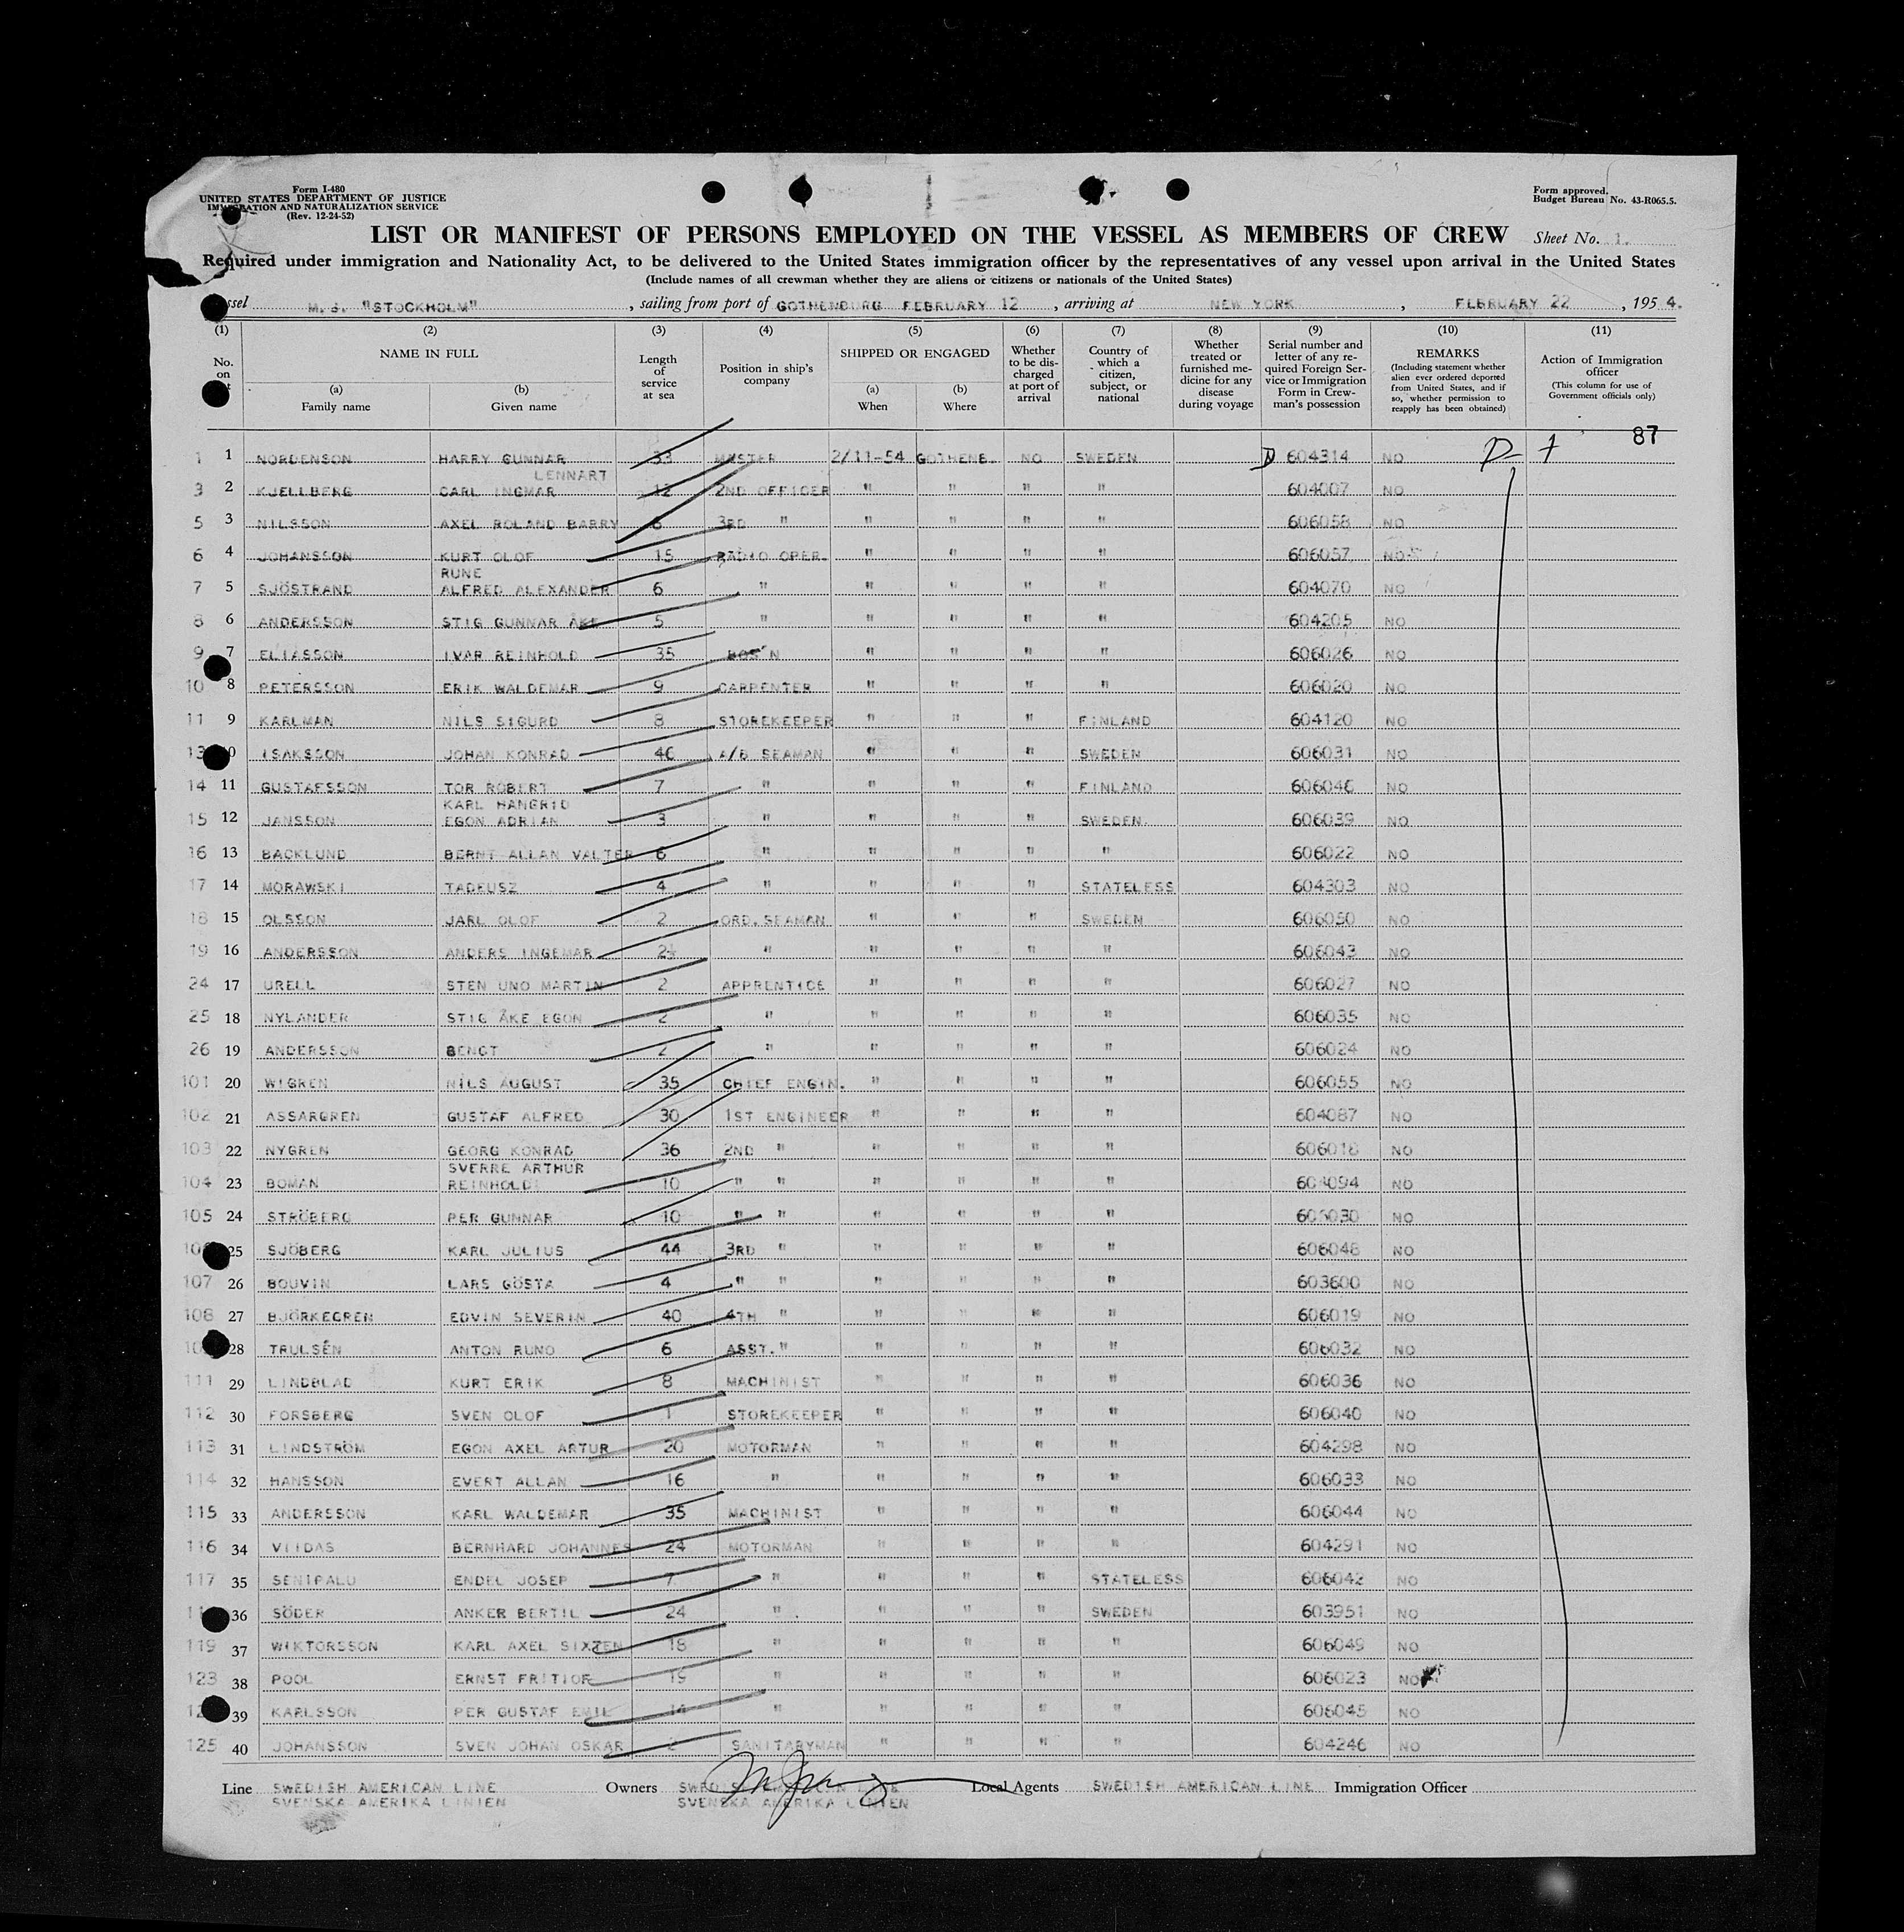 Form I-480
UNITED STATES DEPARTMENT OF JUSTICE
IMMIGRATION AND NATURALIZATION SERVICE
(Rev. 12-24-52)
Form approved.
Budget Bureau No. 43-R065.5.
LIST OR MANIFEST OF PERSONS EMPLOYED ON THE VESSEL AS MEMBERS OF CREW Sheet No. 1.
Required under immigration and Nationality Act, to be delivered to the United States immigration officer by the representatives of any vessel upon arrival in the United States
(Include names of all crewman whether they are aliens or citizens or nationals of the United States)
ssel M. S. "STOCKHOLM", sailing from port of GOTHENBURG FEBRUARY 12, arriving at NEW YORK, FEBRUARY 22, 1954.
(1) (2) (3) (4) (5) (6) (7) (8) (9) (10) (11)
No. on
NAME IN FULL
(a) Family name
(b) Given name
Length of service at sea
Position in ship's company
SHIPPED OR ENGAGED
(a) When
(b) Where
Whether to be discharged at port of arrival
Country of which a citizen, subject, or national
Whether treated or furnished medicine for any disease during voyage
Serial number and letter of any required Foreign Service or Immigration Form in Crewman's possession
REMARKS
(Including statement whether alien ever ordered deported from United States, and if so, whether permission to reapply has been obtained)
Action of Immigration officer
(This column for use of Government officials only)
87
1 1 NORDENSON HARRY GUNNAR 33 MASTER 2/11-54 GOTHENB. NO SWEDEN 604314 NO
LENNART
3 2 KJELLBERG CARL INGMAR 12 2ND OFFICER " " " " 604007 NO
5 3 NILSSON AXEL ROLAND BARRY 6 3RD " " " " " 606058 NO
6 4 JOHANSSON KURT OLOF 15 RADIO OPER. " " " " 606057 NO
RUNE
7 5 SJÖSTRAND ALFRED ALEXANDER 6 " " " " " 604070 NO
8 6 ANDERSSON STIG GUNNAR ÅKE 5 " " " " " 604205 NO
9 7 ELIASSON IVAR REINHOLD 35 BOS'N " " " " 606026 NO
10 8 PETERSSON ERIK WALDEMAR 9 CARPENTER " " " " 606020 NO
11 9 KARLMAN NILS SIGURD 8 STOREKEEPER " " " FINLAND 604120 NO
13 10 ISAKSSON JOHAN KONRAD 46 A/B SEAMAN " " " SWEDEN 606031 NO
14 11 GUSTAFSSON TOR ROBERT 7 " " " " FINLAND 606046 NO
KARL HANGRID
15 12 JANSSON EGON ADRIAN 3 " " " " SWEDEN 606039 NO
16 13 BACKLUND BERNT ALLAN VALTER 6 " " " " " 606022 NO
17 14 MORAWSKI TADEUSZ 4 " " " " STATELESS 604303 NO
18 15 OLSSON JARL OLOF 2 ORD. SEAMAN " " " SWEDEN 606050 NO
19 16 ANDERSSON ANDERS INGEMAR 2½ " " " " " 606043 NO
24 17 URELL STEN UNO MARTIN 2 APPRENTICE " " " " 606027 NO
25 18 NYLANDER STIG ÅKE EGON 2 " " " " " 606035 NO
26 19 ANDERSSON BENGT 2 " " " " " 606024 NO
101 20 WIGREN NILS AUGUST 35 CHIEF ENGIN. " " " " 606055 NO
102 21 ASSARGREN GUSTAF ALFRED 30 1ST ENGINEER " " " " 604087 NO
103 22 NYGREN GEORG KONRAD 36 2ND " " " " " 606018 NO
SVERRE ARTHUR
104 23 BOMAN REINHOLD 10 " " " " " " 604094 NO
105 24 STRÖBERG PER GUNNAR 10 " " " " " " 606030 NO
25 SJÖBERG KARL JULIUS 44 3RD " " " " " 606048 NO
107 26 BOUVIN LARS GÖSTA 4 " " " " " " 603600 NO
108 27 BJÖRKEGREN EDVIN SEVERIN 40 4TH " " " " " 606019 NO
28 TRULSÉN ANTON RUNO 6 ASST. " " " " " 606032 NO
111 29 LINDBLAD KURT ERIK 8 MACHINIST " " " " 606036 NO
112 30 FORSBERG SVEN OLOF 1 STOREKEEPER " " " " 606040 NO
113 31 LINDSTRÖM EGON AXEL ARTUR 20 MOTORMAN " " " " 604298 NO
114 32 HANSSON EVERT ALLAN 16 " " " " " 606033 NO
115 33 ANDERSSON KARL WALDEMAR 35 MACHINIST " " " " 606044 NO
116 34 VIIDAS BERNHARD JOHANNES 24 MOTORMAN " " " " 604291 NO
117 35 SENIPALU ENDEL JOSEP 7 " " " " STATELESS 606042 NO
36 SÖDER ANKER BERTIL 24 " " " " SWEDEN 603951 NO
119 37 WIKTORSSON KARL AXEL SIXTEN 18 " " " " " 606049 NO
123 38 POOL ERNST FRITIOF 19 " " " " " 606023 NO
39 KARLSSON PER GUSTAF EMIL 14 " " " " " 606045 NO
125 40 JOHANSSON SVEN JOHAN OSKAR SANITARYMAN " " " " 604246 NO
Line SWEDISH AMERICAN LINE Owners SWEDISH AMERICAN LINE Local Agents SWEDISH AMERICAN LINE Immigration Officer
SVENSKA AMERIKA LINIEN SVENSKA AMERIKA LINIEN